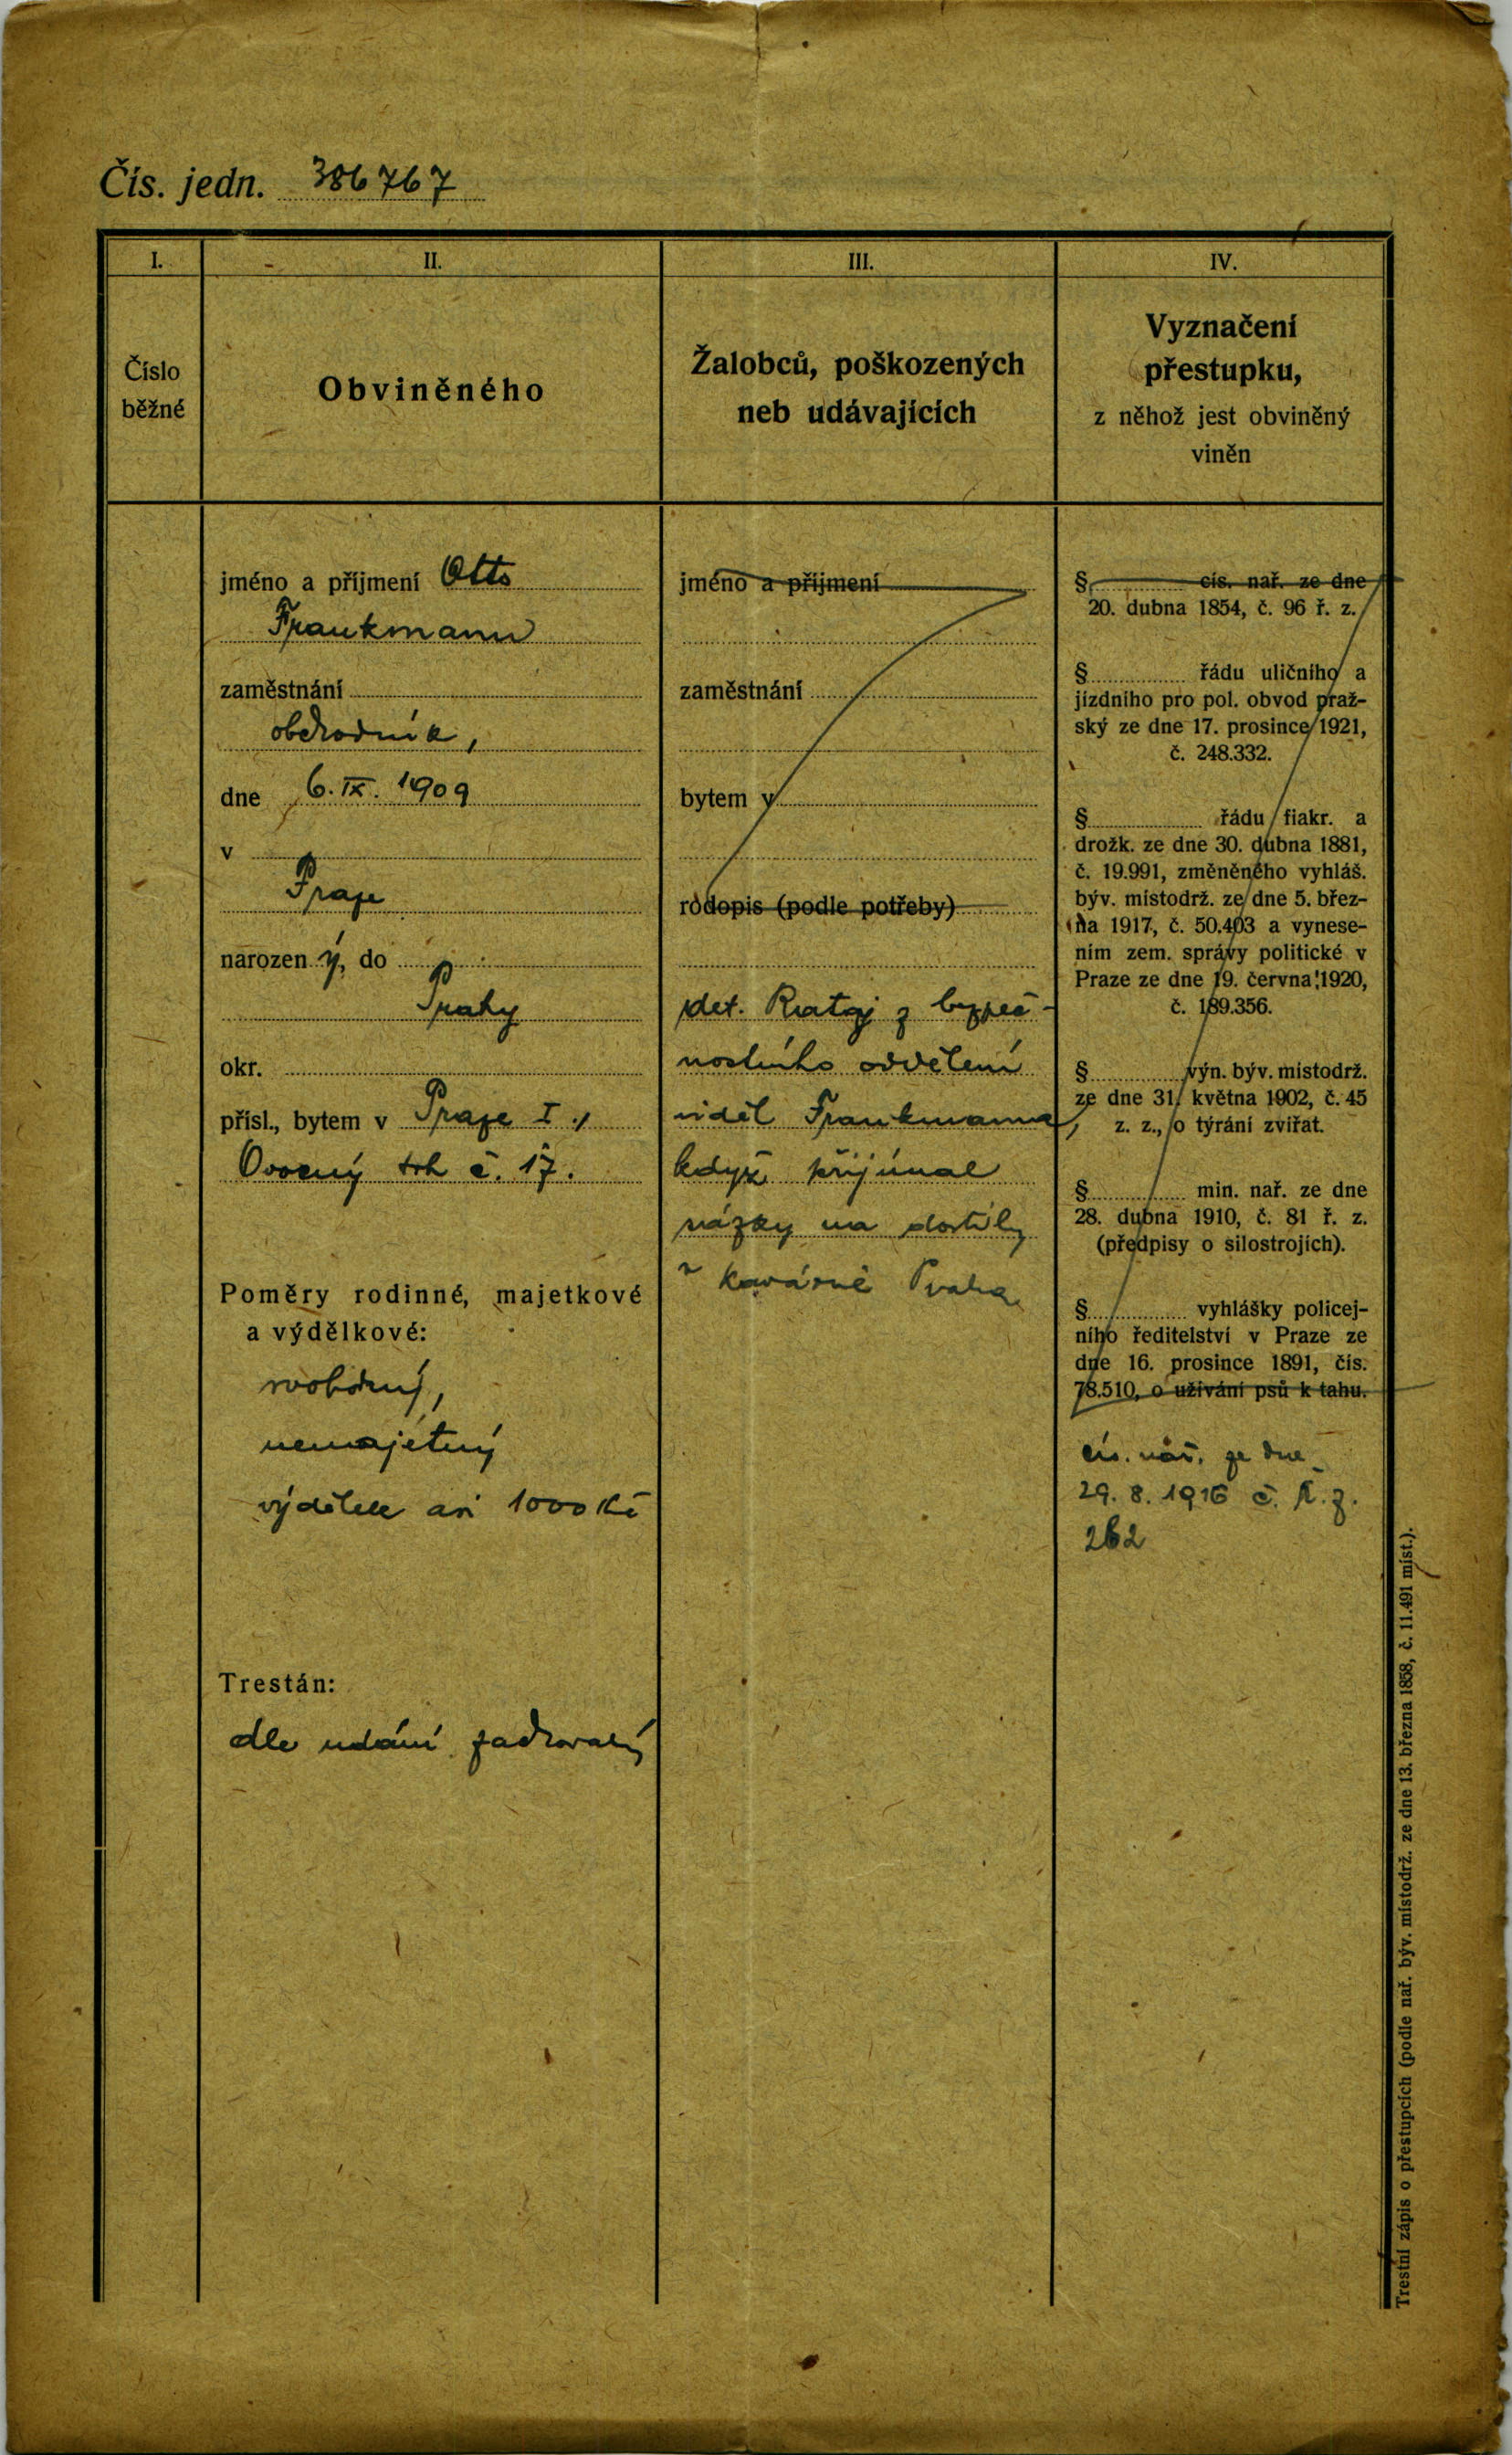 Čís. jedn. 386767
I.
II.
III.
IV.
Číslo
běžné
Obviněného
Žalobců, poškozených
neb udávajících
Vyznačení
přestupku,
z něhož jest obviněný
viněn
jméno a příjmení Otto
Frankmann
zaměstnání
obchodník,
dne 6. IX. 1909
v
Praze
narozen ý, do
Prahy
okr.
přísl., bytem v Praze I.,
Ovocný trh č. 17.
Poměry rodinné, majetkové
a výdělkové:
svobodný,
nemajetný
výdělek asi 1000 Kč
Trestán:
dle udání zachovalý
jméno a příjmení
zaměstnání
bytem v
rodopis (podle potřeby)
det. Rataj z bezpeč-
nostního oddělení
viděl Frankmanna,
když přijímal
sázky na dostihy
v kavárně Praha
§ cís. nař. ze dne
20. dubna 1854, č. 96 ř. z.
§ řádu uličního a
jízdního pro pol. obvod praž-
ský ze dne 17. prosince 1921,
č. 248.332.
§ řádu fiakr. a
drožk. ze dne 30. dubna 1881,
č. 19.991, změněného vyhláš.
býv. místodrž. ze dne 5. břez-
na 1917, č. 50.403 a vynese-
ním zem. správy politické v
Praze ze dne 19. června 1920,
č. 189.356.
§ výn. býv. místodrž.
ze dne 31. května 1902, č. 45
z. z., o týrání zvířat.
§ min. nař. ze dne
28. dubna 1910, č. 81 ř. z.
(předpisy o silostrojích).
§ vyhlášky policej-
ního ředitelství v Praze ze
dne 16. prosince 1891, čís.
78.510, o užívání psů k tahu.
cís. nař. ze dne
29. 8. 1916 č. ř. z.
262
Trestní zápis o přestupcích (podle nař. býv. místodrž. ze dne 13. března 1858, č. 11.491 míst.).